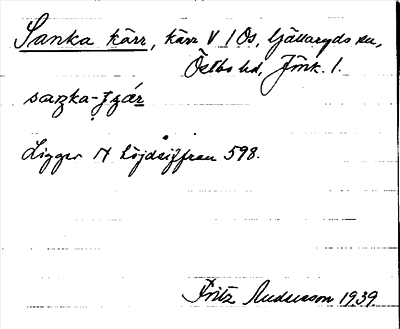 Sanka kärr, kärr V 1 Ös, Gällaryds sn,
Östbo hd, Jönk. l.
Ligger N höjdsiffran 598.
Fritz Andersson 1939.